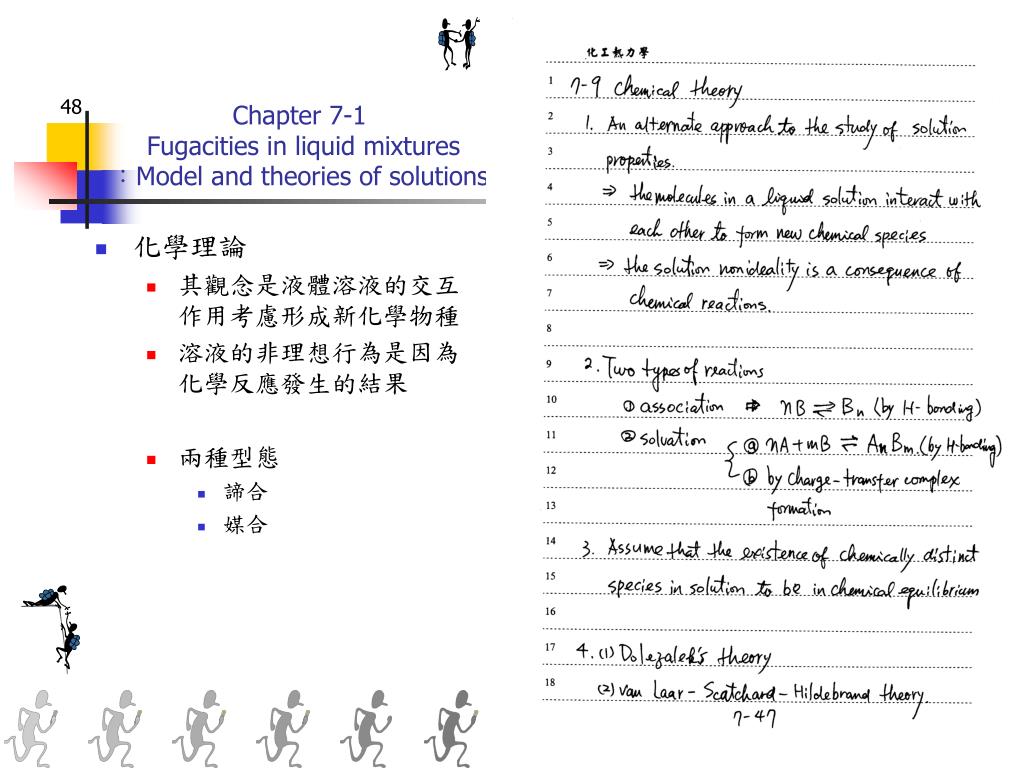 48
Chapter 7-1
Fugacities in liquid mixtures
: Model and theories of solutions
化學理論
其觀念是液體溶液的交互
作用考慮形成新化學物種
溶液的非理想行為是因為
化學反應發生的結果
兩種型態
諦合
媒合
化工熱力學
1 7-9 Chemical theory
2 1. An alternate approach to the study of solution
3 properties.
4 ⇒ the molecules in a liquid solution interact with
5 each other to form new chemical species
6 ⇒ the solution nonideality is a consequence of
7 chemical reactions.
8
9 2. Two types of reactions
10 ① association ⇒ nB ⇌ Bn (by H-bonding)
11 ② solvation { ⓐ nA+mB ⇌ AnBm (by H-bonding)
12 ⓑ by charge-transfer complex
13 formation
14 3. Assume that the existence of chemically distinct
15 species in solution to be in chemical equilibrium
16
17 4. (1) Dolezalek's theory
18 (2) van Laar - Scatchard - Hildebrand theory.
7-47